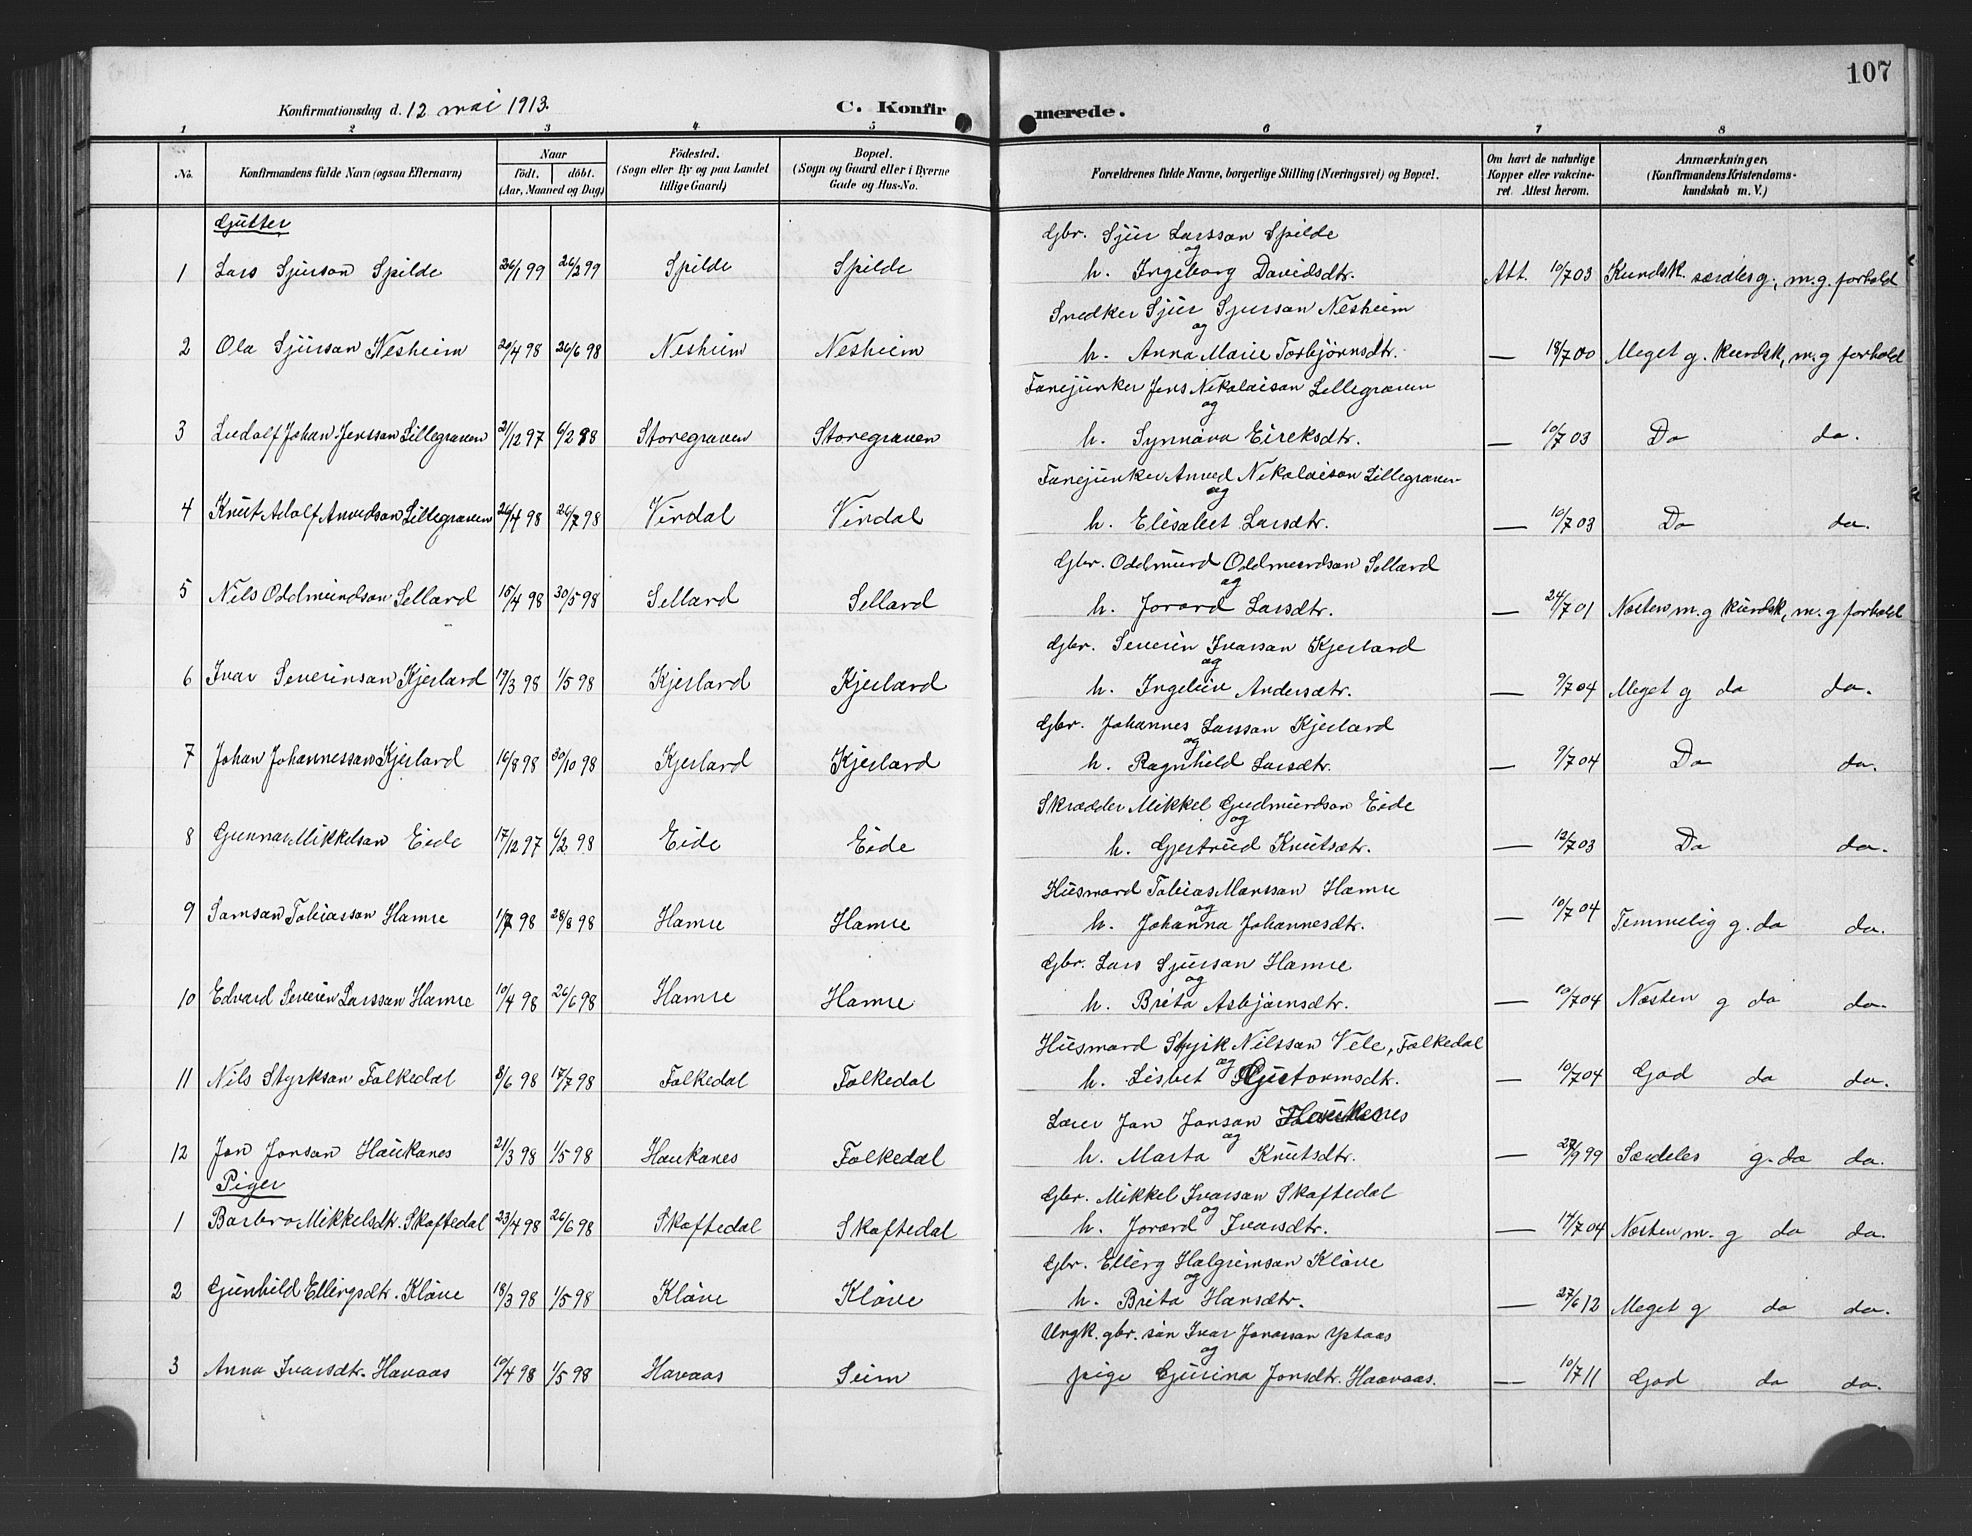 107
Konfirmationsdag d. 12 mai 1913. C. Konfirmerede.
1 2 3 4 5 6 7 8
No. Konfirmandens fulde Navn (ogsaa Efternavn) Naar født. døbt. (Aar, Maaned og Dag) Fødested. (Sogn eller By og paa Landet tillige Gaard) Bopæl. (Sogn og Gaard eller i Byerne Gade og Hus-No. Forældrenes fulde Navne, borgerlige Stilling (Næringsvei) og Bopæl. Om havt de naturlige Kopper eller vaccineret. Attest herom. Anmærkninger. (Konfirmandens Kristendomskundskab m. V.)
Gutter
Gbr. Sjur Larsson Spilde
og
1 Lars Sjurson Spilde 26/1 99 26/2 99 Spilde Spilde h. Ingeborg Davidsdtr. Att. 10/7 03 Kundsk. særdles g., m. g. forhold
Snedker Sjur Sjursan Nesheim
og
2 Ola Sjursan Nesheim 20/4 98 26/6 98 Nesheim Nesheim h. Anna Marie Torbjørnsdtr. — 18/7 00 Meget g. kundsk, m. g forhold
Fanejunker Jens Nikolaisan Lillegraven
og
3 Ludolf Johan Jenssan Lillegraven 21/12 97 6/2 98 Storegraven Storegraven h. Synnøva Eireksdtr. — 10/7 03 Do do.
Fanejunker Anved Nikolaison Lillegraven
og
4 Knut Adolf Anvedson Lillegraven 26/4 98 26/7 98 Vindal Vindal h. Elisabet Larsdtr. — 10/7 03 Do do.
Gbr. Oddmund Oddmundson Selland
og
5 Nils Oddmundson Selland 15/4 98 30/5 98 Selland Selland h. Jorand Larsdtr. — 24/7 01 Næsten m. g kundsk, m. g forhold
Gbr. Severin Ivarsan Kjerland
og
6 Ivar Severinsan Kjerland 17/3 98 1/5 98 Kjerland Kjerland h. Ingeleiv Andersdtr. — 9/7 04 Meget g do do.
Gbr. Johannes Larssan Kjerland
og
7 Johan Johannessan Kjerland 16/8 98 30/10 98 Kjerland Kjerland h. Ragnhild Larsdtr. — 9/7 04 Do do.
Skrædder Mikkel Gudmundson Eide
og
8 Gunnar Mikkelsan Eide 17/12 97 6/2 98 Eide Eide h. Gjertrud Knutsdtr. — 12/7 03 Do do.
Husmand Tobias Monssan Hamre
og
9 Samsan Tobiassan Hamre 1/7 98 28/8 98 Hamre Hamre h. Johanna Johannesdtr. — 10/7 04 Temmelig g. do do.
Gbr. Lars Sjursan Hamre
og
10 Edvard Severin Larssan Hamre 10/4 98 26/6 98 Hamre Hamre h. Brita Asbjørnsdtr. — 10/7 04 Næsten g do do.
Husmand Styrk Nilssan Vele, Folkedal
og
11 Nils Styrksan Folkedal 8/6 98 17/7 98 Folkedal Folkedal h. Lisbet Guttormsdtr. — 10/7 04 God do do.
Lærer Jon Jonsan Haukanes
og
12 Jon Jonsan Haukanes 21/3 98 1/5 98 Haukanes Folkedal h. Marta Knutsdtr. — 27/9 99 Særdeles g. do do.
Piger
Gbr. Mikkel Ivarsan Skaftedal
og
1 Barbro Mikkelsdtr. Skaftedal 23/4 98 26/6 98 Skaftedal Skaftedal h. Jorand Ivarsdtr. — 14/7 04 Næsten m. g do do.
Gbr. Elling Halgrimsan Kløve
og
2 Gunhild Ellingsdtr. Kløve 18/3 98 1/5 98 Kløve Kløve h. Brita Hansdtr. — 27/6 12 Meget g do do.
Ungk. gbr. søn Ivar Jonassan Ystaas
og
3 Anna Ivarsdtr. Havaas 10/4 98 1/5 98 Havaas Seim pige Gjurina Jonsdtr. Haavaas. — 10/7 11 God do do.